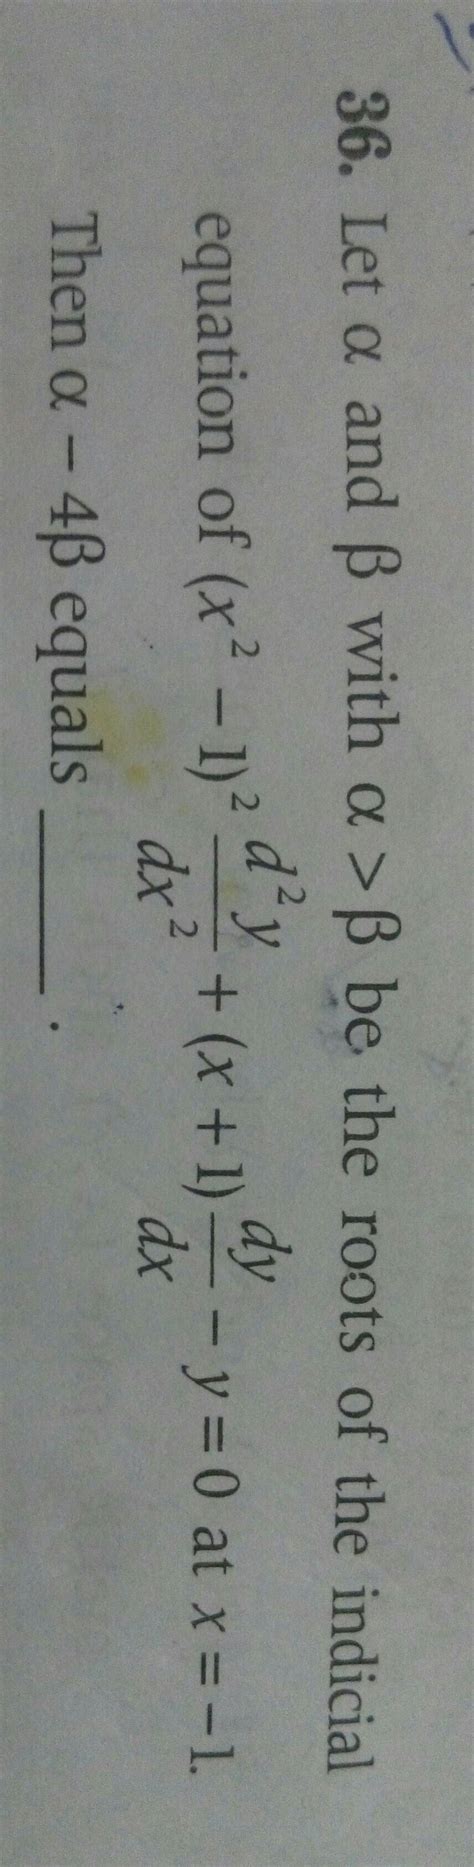 36. Let α and β with α > β be the roots of the indicial
equation of (x² – 1)² d²y/dx² + (x + 1) dy/dx – y = 0 at x = –1.
Then α – 4β equals ______.